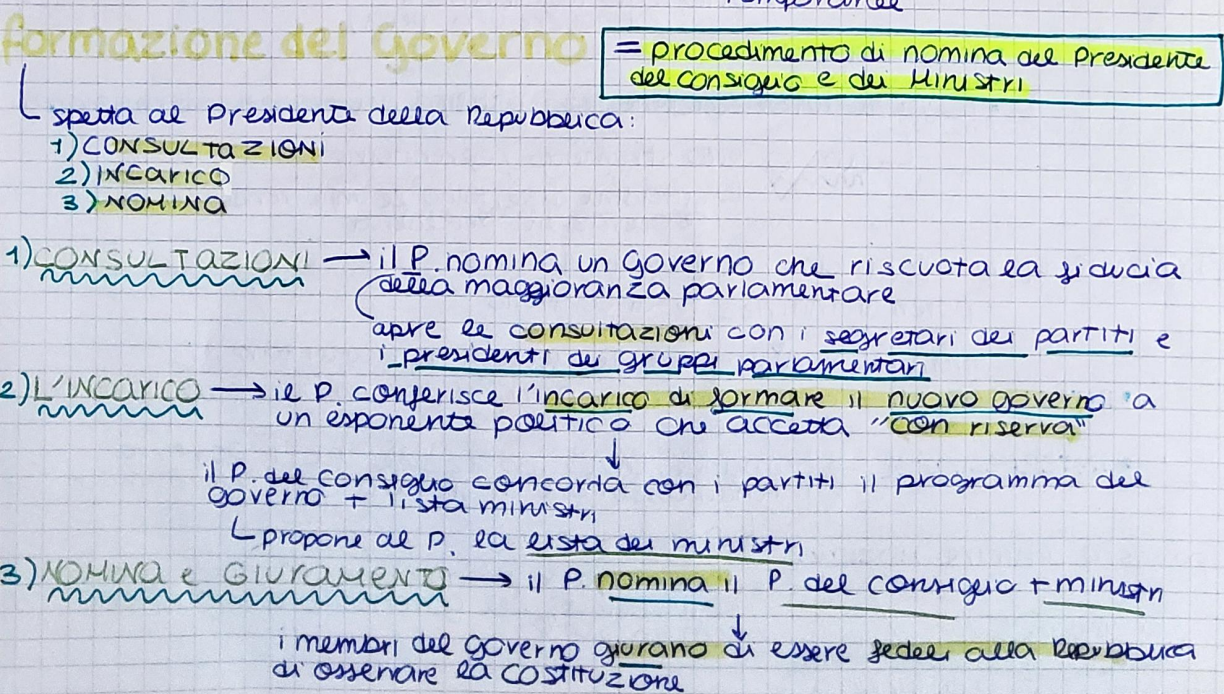 formazione del Governo
= procedimento di nomina del Presidente
del Consiglio e dei Ministri
spetta al Presidente della Repubblica:
1) CONSULTAZIONI
2) INCARICO
3) NOMINA
1) CONSULTAZIONI → il P. nomina un Governo che riscuota la fiducia
della maggioranza parlamentare
apre le consultazioni con i segretari dei partiti e
i presidenti dei gruppi parlamentari
2) L'INCARICO → il P. conferisce l'incarico di formare il nuovo governo a
un esponente politico che accetta "con riserva"
↓
il P. del consiglio concorda con i partiti il programma del
governo + lista ministri
propone al P. la lista dei ministri
3) NOMINA e GIURAMENTO → il P. nomina il P. del consiglio + ministri
↓
i membri del Governo giurano di essere fedeli alla Repubblica
di osservare la costituzione